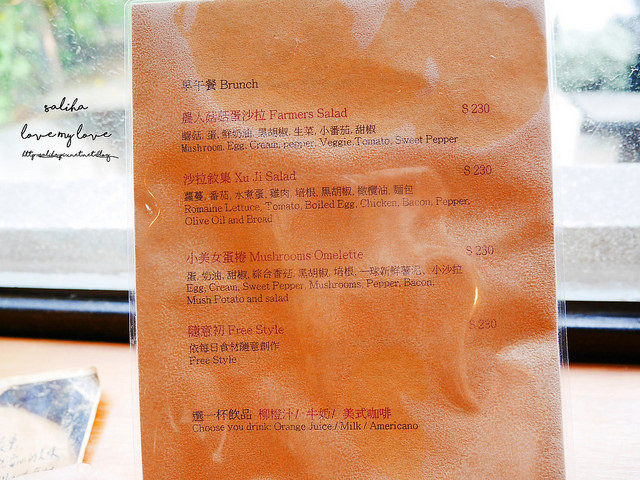 saliha
love my love
早午餐 Brunch
農人菇菇蛋沙拉 Farmers Salad $ 230
蘑菇, 蛋, 鮮奶油, 黑胡椒, 生菜, 小番茄, 甜椒
Mushroom, Egg, Cream, pepper, Veggie, Tomato, Sweet Pepper
沙拉敘集 Xu Ji Salad $ 230
蘿蔓, 番茄, 水煮蛋, 雞肉, 培根, 黑胡椒, 橄欖油, 麵包
Romaine Lettuce, Tomato, Boiled Egg, Chicken, Bacon, Pepper,
Olive Oil and Bread
小美女蛋捲 Mushrooms Omelette $ 230
蛋, 奶油, 甜椒, 綜合香菇, 黑胡椒, 培根, 一球新鮮薯泥, 小沙拉
Egg, Cream, Sweet Pepper, Mushrooms, Pepper, Bacon,
Mush Potato and salad
隨意初 Free Style $ 230
依每日食材隨意創作
Free Style
選一杯飲品 柳橙汁/ 牛奶/ 美式咖啡
Choose you drink: Orange Juice / Milk / Americano